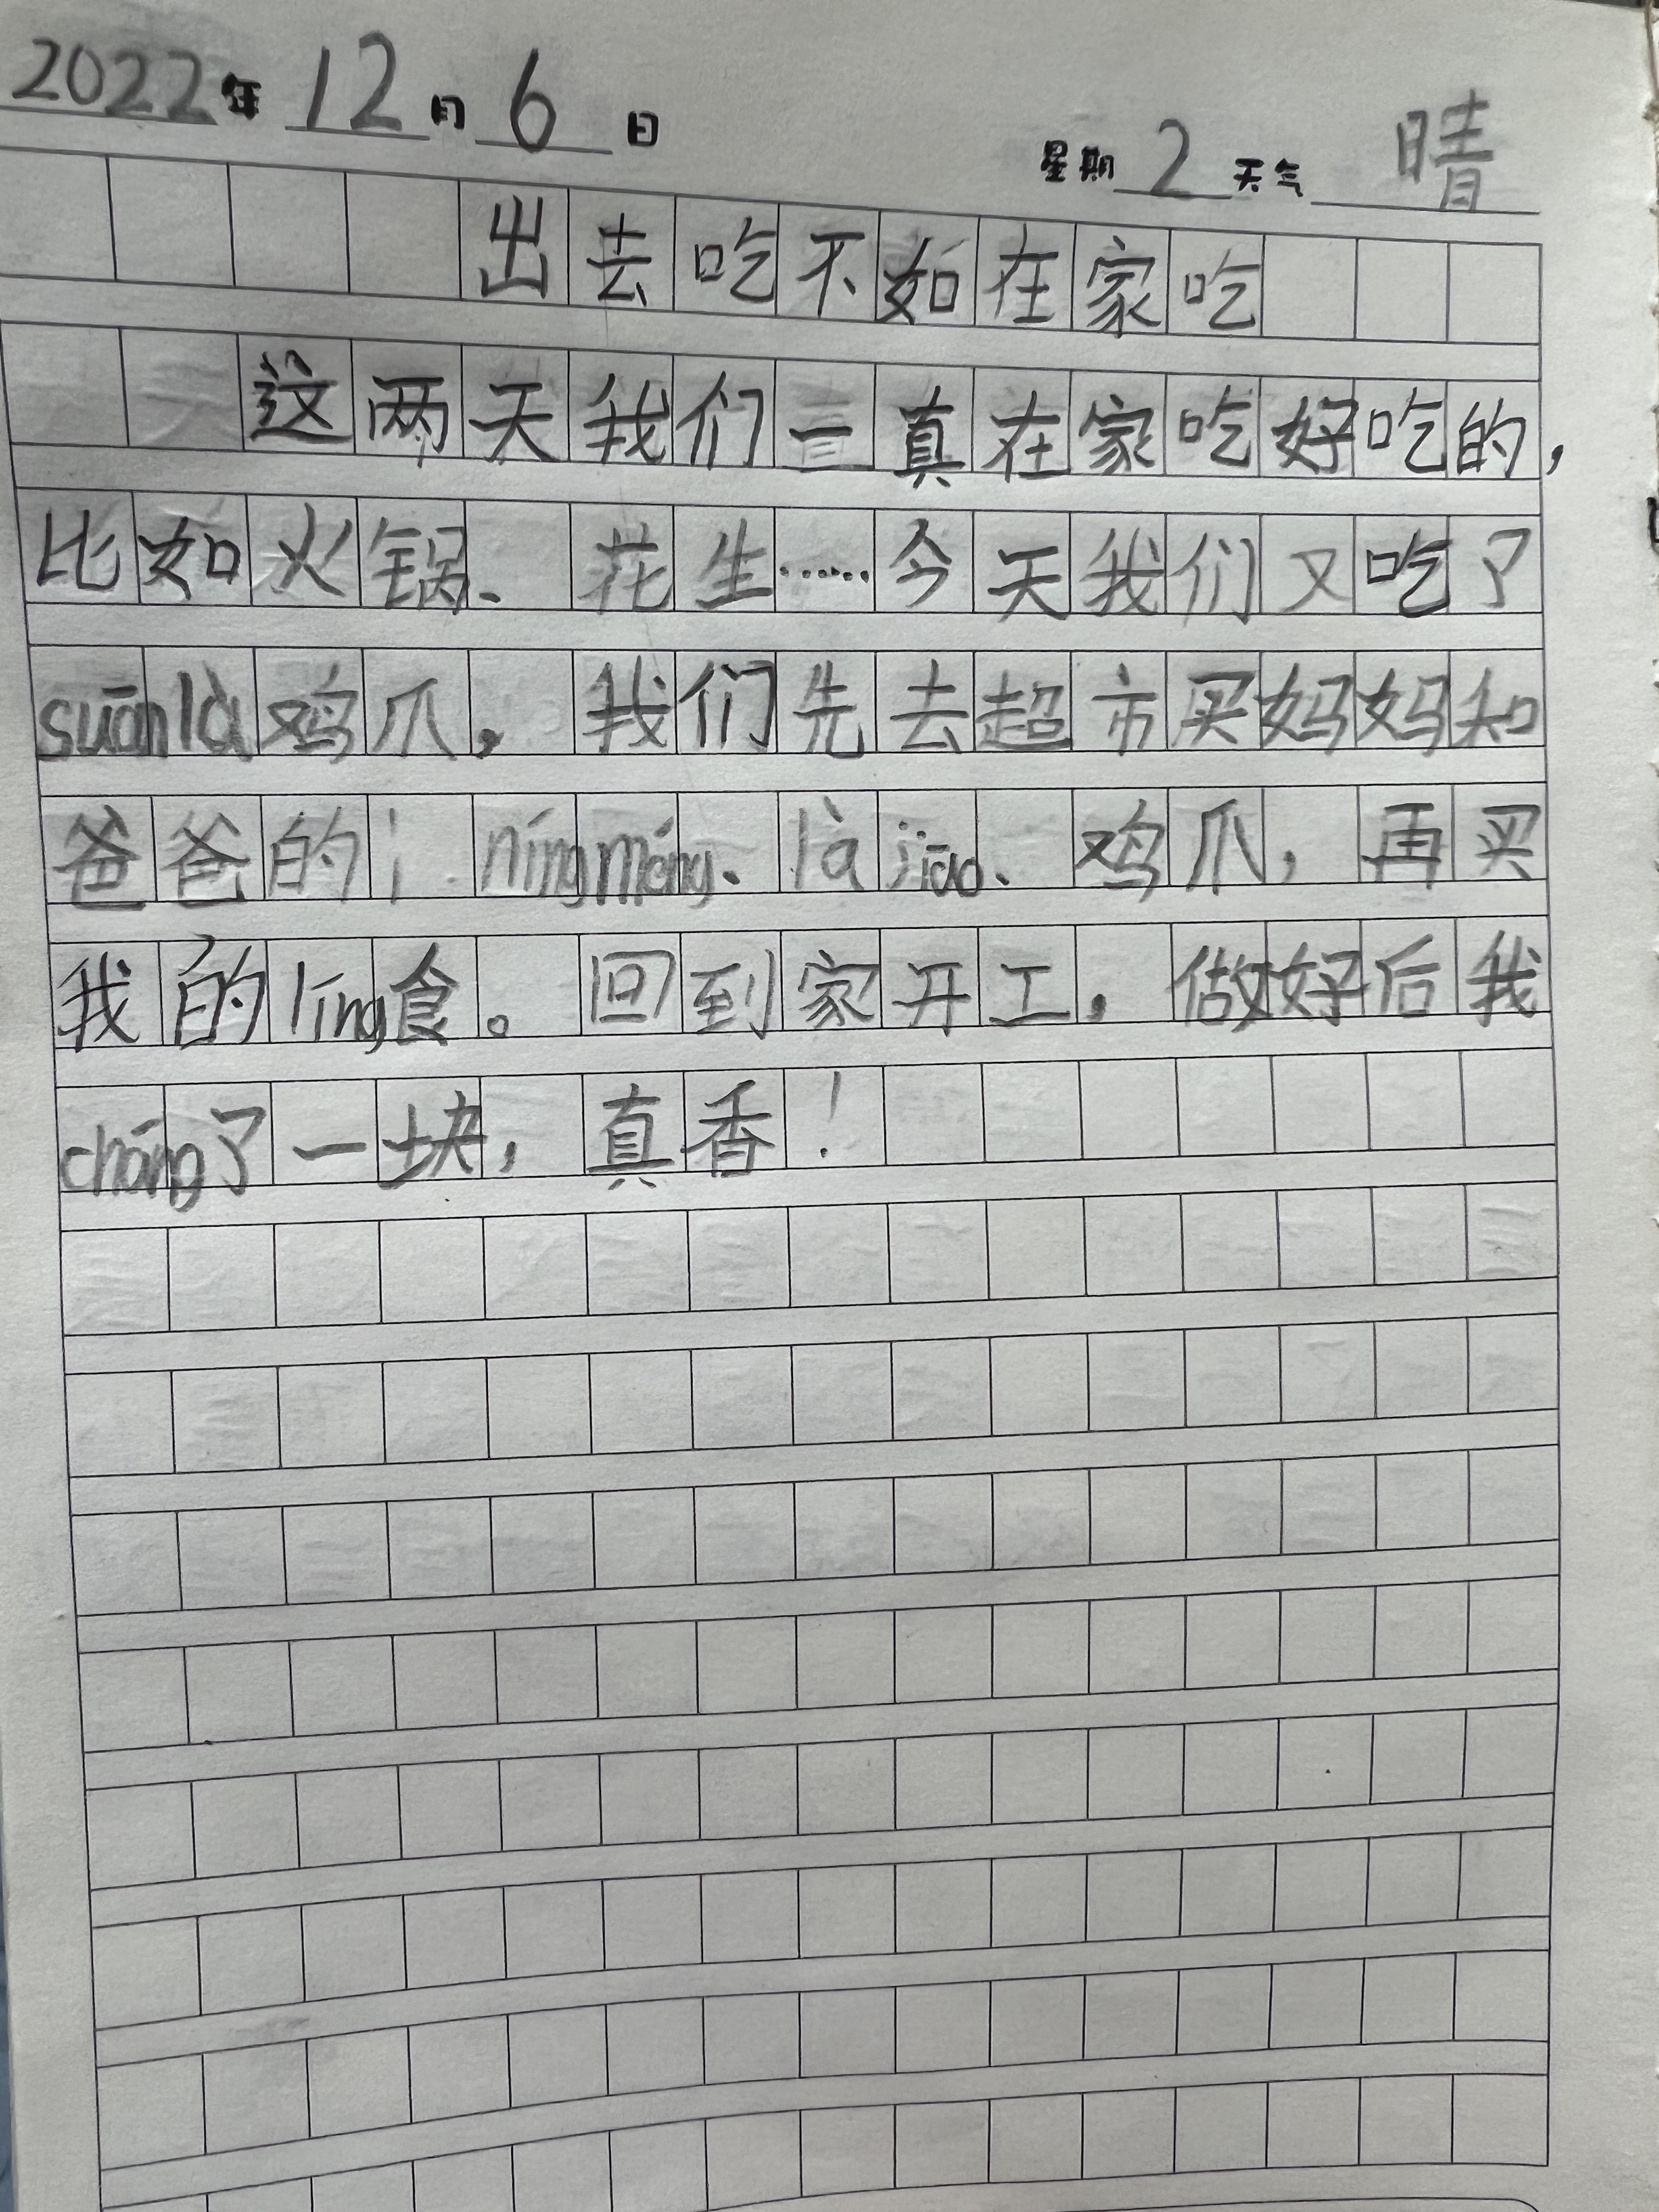 2022年 12月 6日 星期 2 天气 晴
出去吃不如在家吃
这两天我们一真在家吃好吃的，
比如火锅、花生……今天我们又吃了
suān là鸡爪，我们先去超市买妈妈和
爸爸的；níng méng、là jiāo、鸡爪，再买
我的líng食。回到家开工，做好后我
cháng了一块，真香！